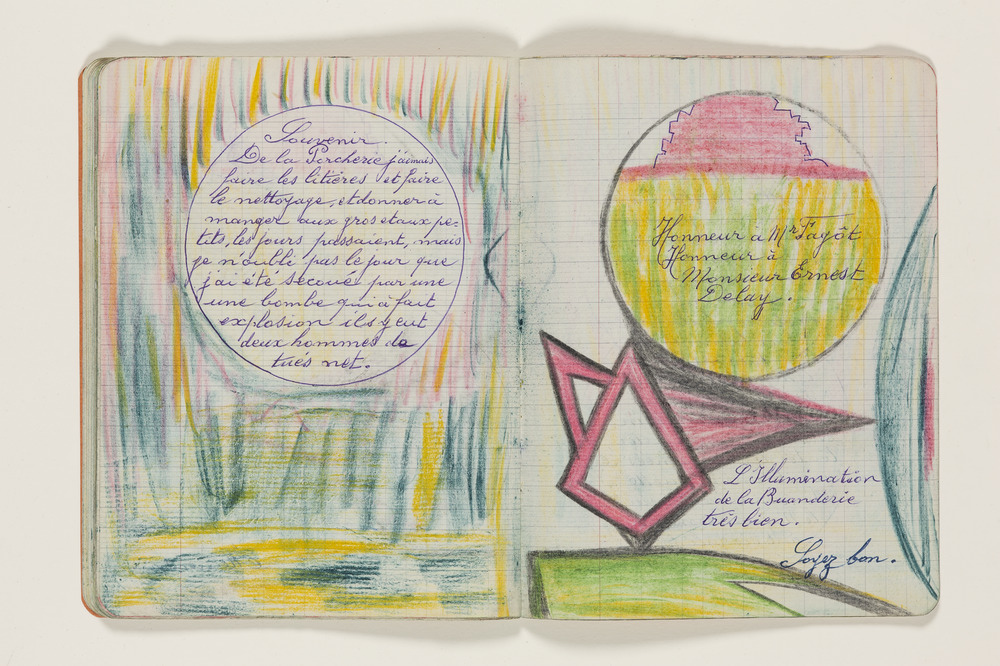 Souvenir.
De la Porcherie j'aimais
faire les litières et faire
le nettoyage, et donner à
manger aux gros et aux pe-
tits, les jours passaient, mais
je n'oubli pas le jour que
j'ai été secoué par une
une bombe qui à fait
explosion il s y eut
deux hommes de
tués net.
Honneur a Mr Fagôt
Honneur à
Monsieur Ernest
Delay.
L'Illumination
de la Buanderie
très bien.
Soyez bon.